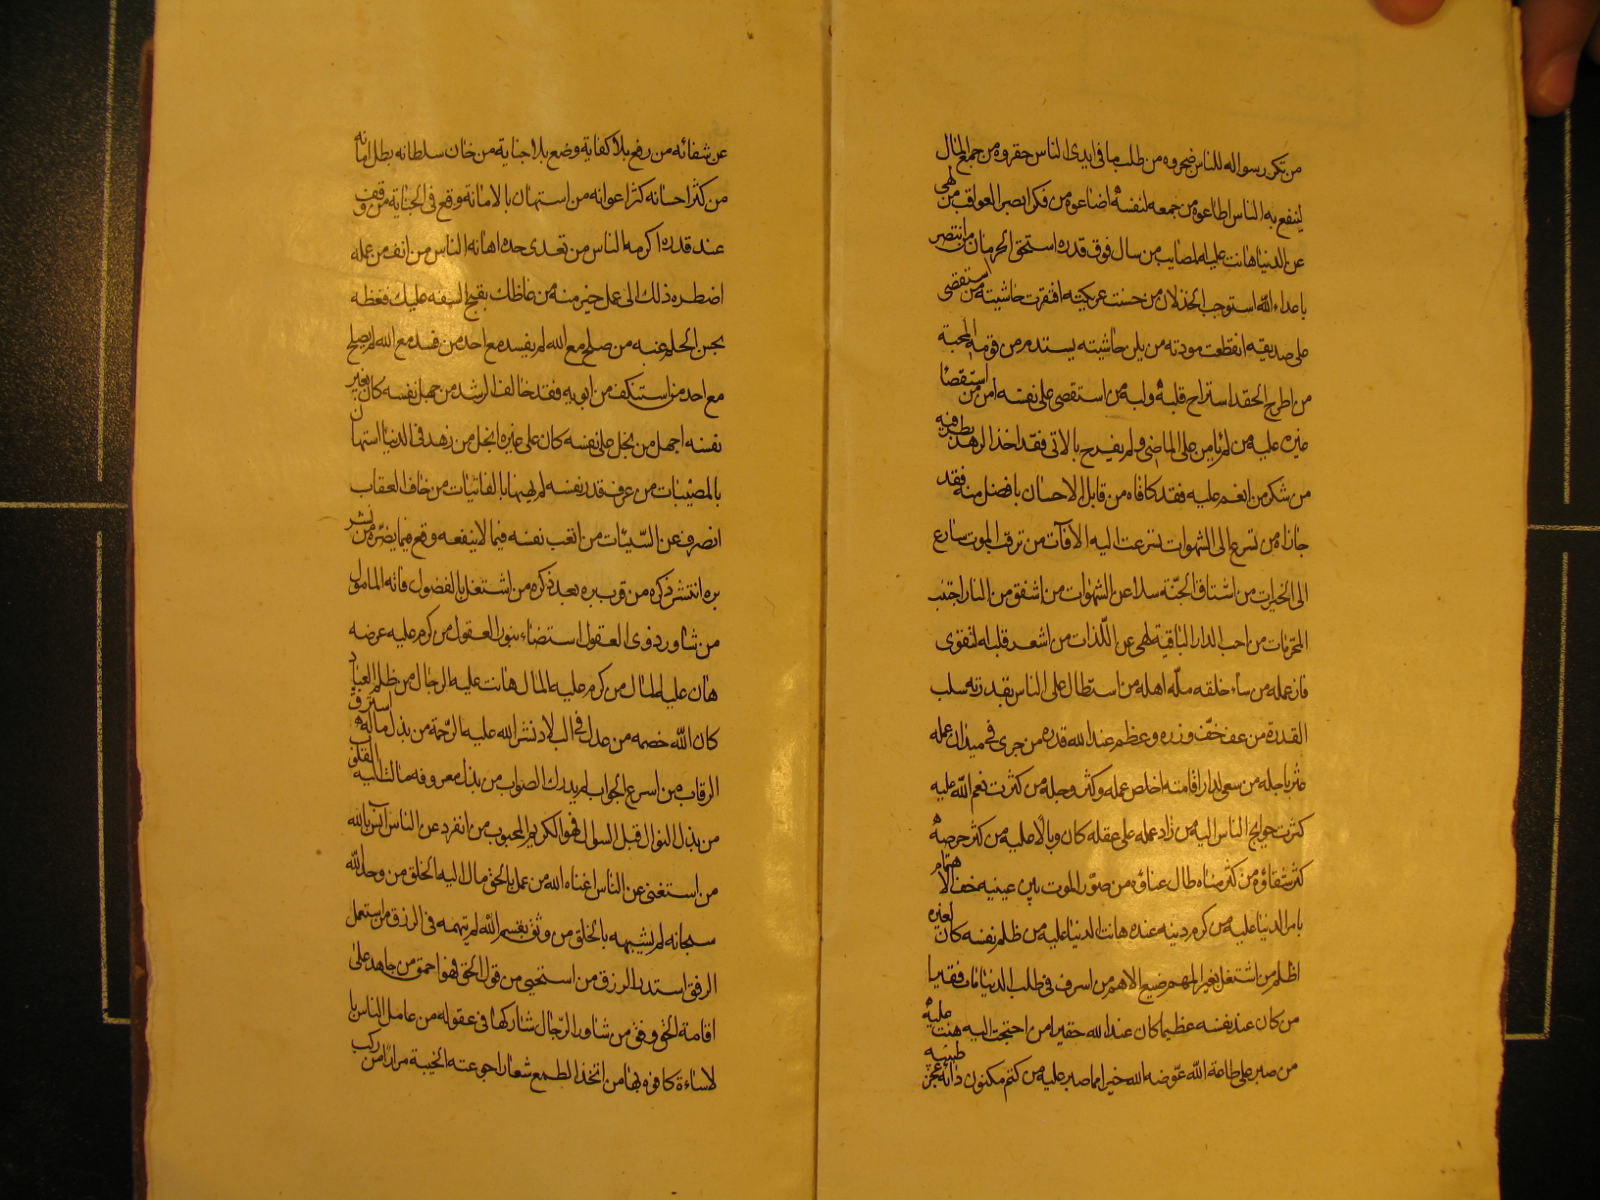 من تكرر سواله للناس ضجروه من طلب ما فى ايدى الناس حقروه من جمع المال
لينفع به الناس اطاعوه من جمعه لنفسه اضاعوه من فكر ابصر العواقب من لهى
عن الدنيا هانت عليه المصايب من سال فوق قدره استحق الحرمان من انتصر
باعداء الله استوجب الخذلان من خشنت عريكته افقرت حاشيته من استقصى
على صديقه انقطعت مودته من يلن حاشيته يستدم من قومه المحبة
من اطرح الحقد استراح قلبه ولبه من استقصى على نفسه امن من استقصاء
غيره عليه من لم ياس على الماضى ولم يفرح بالاتى فقد اخذ الزهد بطرفيه
من شكر من انعم عليه فقد كافاه من قابل الاحسان بافضل منه فقد
جازاه من تسرع الى الشهوات تسرعت اليه الافآت من ترقب الموت سارع
الى الخيرات من اشتاق الجنّة سلا عن الشهوات من اشفق من النار اجتنب
المحرّمات من احب الدار الباقية لهى عن اللّذات من اشعر قلبه التقوى
فاز عمله من ساء خلقه ملّه اهله من استطال على الناس بقدرته سلب
القدرة من عف خفّ وزره وعظم عند الله قدره من جرى فى ميدان عمله
عثر باجله من سعى لدار اقامته اخلص عمله وكثر وجله من كثرت نعم الله عليه
كثرت حوايج الناس اليه من زاد عمله على عقله كان وبالا عليه من كثر حرصه
كثر شقاؤه من كثر مناه طال عناؤه من صوّر الموت بين عينيه خف الاهتمام
بامر الدنيا عليه من كرم دينه عنده هانت الدنيا عليه من ظلم نفسه كان لغيره
اظلم من اشتغل بغير المهم ضيع الاهم من اسرف فى طلب الدنيا مات فقيرا
من كان عند نفسه عظيما كان عند الله حقيرا من احتجت اليه هنت عليه
من صبر على طاعة الله عوّضه الله خيرا مما صبر عليه من كتم مكنون دائه عجز طبيبه
عن شفائه من رفع بلا كفاية وضع بلا جناية من خان سلطانه بطل امانه
من كثر احسانه كثر اعوانه من استهان بالامانة وقع فى الخيانة من وقف
عند قدره اكرمه الناس من تعدى حده اهانه الناس من انف من عمله
اضطره ذلك الى عمل خير منه من غاظك بقبح السفه عليك فغظه
بحسن الحلم عنه من صلح مع الله لم يفسد مع احد من فسد مع الله لم يصلح
مع احد من استنكف من ابويه فقد خالف الرشد من جهل نفسه كان بغير
نفسه اجهل من بخل على نفسه كان على غيره ابخل من زهد فى الدنيا استهان
بالمصيبات من عرف قدر نفسه لم يهنها بالفانيات من خاف العقاب
انصرف عن السّيئات من اتعب نفسه فيما لا ينفعه وقع فيما يضرّه من نشر
بره انتشر ذكره من قرب بره بعد ذكره من اشتغل بالفضول فاته المامول
من شاور ذوى العقول استضاء بنور العقول من كرم عليه عرضه
هان عليه المال من كرم عليه المال هانت عليه الرجال من ظلم العباد
كان الله خصمه من عدل فى البلاد نشر الله عليه الرّحمة من بذل ماله استرق
الرقاب من اسرع الجواب لم يدرك الصواب من بذل معروفه مالت اليه القلوب
من بذل النوال قبل السوال فهو الكريم المحبوب من انفرد عن الناس آنس بالله
من استغنى عن الناس اغناه الله من عمل بالحق مال اليه الخلق من وحد الله
سبحانه لم يشبهه بالخلق من وثق بقسم الله لم يتهمه فى الرزق من استعمل
الرفق استدر الرزق من استحيى من قول الحق فهو احمق من جاهد على
اقامة الحق وفق من شاور الرّجال شاركها فى عقوله من عامل الناس با
لاساءة كافوه بها من اتخذ الطمع شعارا جرعته الخيبة مرارا من ركب